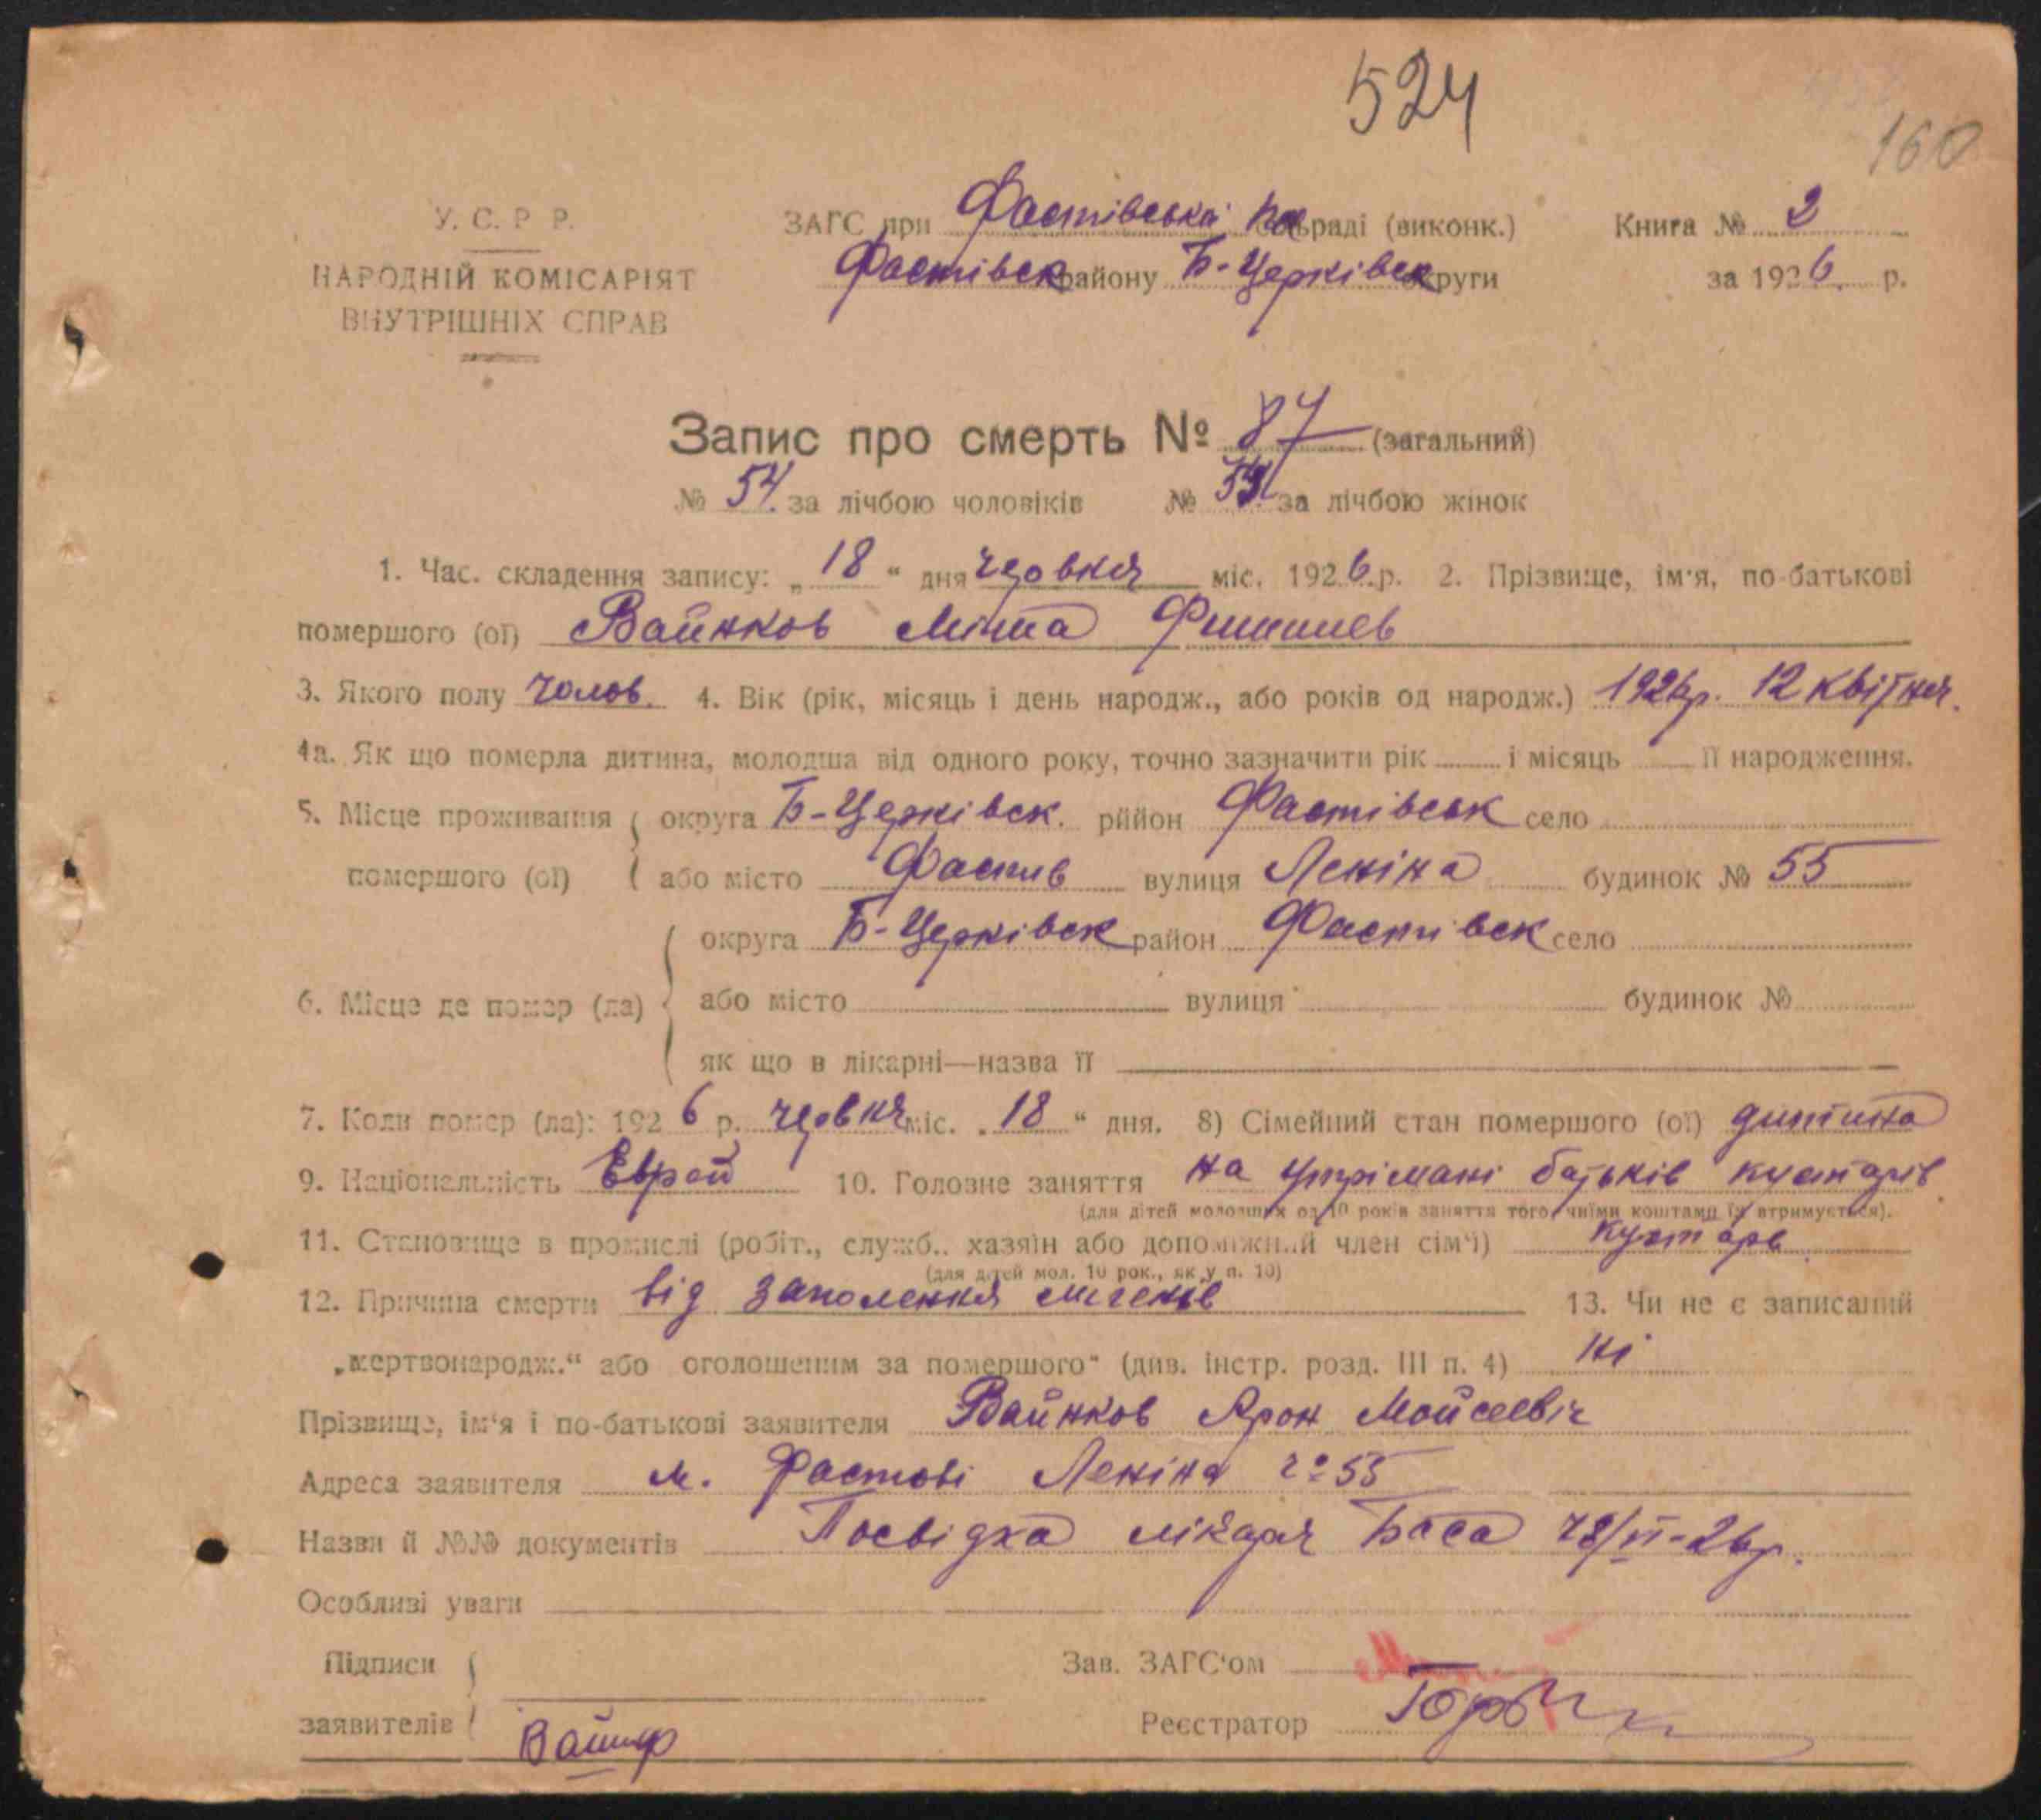 524
160
У. С. Р Р.
ЗАГС при Фастівська раді (виконк.) Книга № 2
НАРОДНІЙ КОМІСАРІЯТ Фастівськ району Б-Церківск округи за 1926 р.
ВНУТРІШНІХ СПРАВ
Запис про смерть № 87 (загальний)
№ 54. за лічбою чоловіків № за лічбою жінок
1. Час. складення запису: „ 18 “ дня червня міс. 1926.р. 2. Прізвище, ім'я, по-батькові
помершого (ої) Вайнков Міша
3. Якого полу чолов. 4. Вік (рік, місяць і день народж., або років од народж.) 1926р. 12 квітня.
4а. Як що померла дитина, молодша від одного року, точно зазначити рік і місяць її народження.
5. Місце проживання округа Б-Церківск. рийон Фастівськ село
помершого (ої) або місто Фастив вулиця Леніна будинок № 55
округа Б-Церківск район Фастівск село
6. Місце де помер (ла) або місто вулиця будинок №
як що в лікарні—назва її
7. Коли помер (ла): 1926 р. червня міс. „18 “ дня. 8) Сімейний стан помершого (ої) дитина
9. Національність Еврей 10. Головне заняття на утрімані батьків кустарів
(для дітей молодших од 10 років заняття того, чиїми коштами їх втримується).
11. Становище в промислі (робіт., служб., хазяїн або допоміжний член сім'ї) кустарв
(для дітей мол. 10 рок., як у п. 10)
12. Причина смерти від заполення мігенів 13. Чи не є записаний
„мертвонародж.“ або оголошеним за помершого“ (див. інстр. розд. III п. 4) ні
Прізвище, ім'я і по-батькові заявителя Вайнков Арон Мойсеевіч
Адреса заявителя м. Фастові Леніна № 55
Назви й №№ документів Посвідка лікаря Баса 18/VI-26р.
Особливі уваги
Підписи Зав. ЗАГС'ом
заявителів Реєстратор